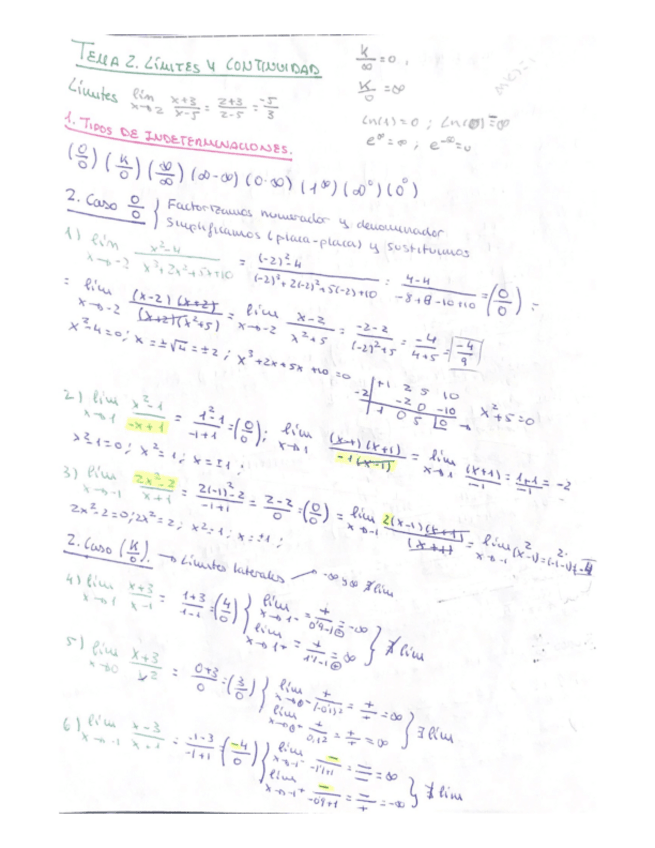 TEMA 2. LÍMITES Y CONTINUIDAD
K/∞ = 0,
K/0 = ∞
Límites lim x→2 x+3/x-5 = 2+3/2-5 = -5/3
Ln(1)=0; Ln(0)=∞
e^∞=∞; e^-∞=0
1. TIPOS DE INDETERMINACIONES.
(0/0) (K/0) (∞/∞) (∞-∞) (0·∞) (1^∞) (∞^0) (0^0)
2. Caso 0/0 } Factorizamos numerador y denominador
Simplificamos (placa-placa) y sustituimos
1) lim x→-2 x²-4/x³+2x²+5x+10 = (-2)²-4/(-2)³+2(-2)²+5(-2)+10 = 4-4/-8+8-10+10 = (0/0) =
= lim x→-2 (x-2)(x+2)/(x+2)(x²+5) = lim x→-2 x-2/x²+5 = -2-2/(-2)²+5 = -4/4+5 = -4/9
x²-4=0; x=±√4=±2; x³+2x+5x+10=0
+1 2 5 10
-2 -2 0 -10
1 0 5 0 → x²+5=0
2) lim x→1 x²-1/-x+1 = 1²-1/-1+1 = (0/0); lim x→1 (x-1)(x+1)/-1(x-1) = lim x→1 (x+1)/-1 = 1+1/-1 = -2
x²-1=0; x²=1; x=±1;
3) lim x→-1 2x²-2/x+1 = 2(-1)²-2/-1+1 = 2-2/0 = (0/0) = lim x→-1 2(x-1)(x+1)/(x+1) = lim x→-1 2(x-1) = 2·(-1-1) = -4
2x²-2=0; 2x²=2; x²=1; x=±1;
2. Caso (K/0). → Límites laterales → -∞ y ∞ ∄ lim
4) lim x→1 x+3/x-1 = 1+3/1-1 = (4/0) { lim x→1- = +/0'9-1 = -∞
lim x→1+ = +/1'1-1 = ∞ } ∄ lim
5) lim x→0 x+3/x² = 0+3/0 = (3/0) { lim x→0- +/(-0'1)² = +/+ = ∞
lim x→0+ +/0,1² = +/+ = ∞ } ∃ lim
6) lim x→-1 x-3/x+1 = -1-3/-1+1 = (-4/0) { lim x→-1- -/-1'1+1 = -/- = ∞
lim x→-1+ -/-0'9+1 = -/+ = -∞ } ∄ lim